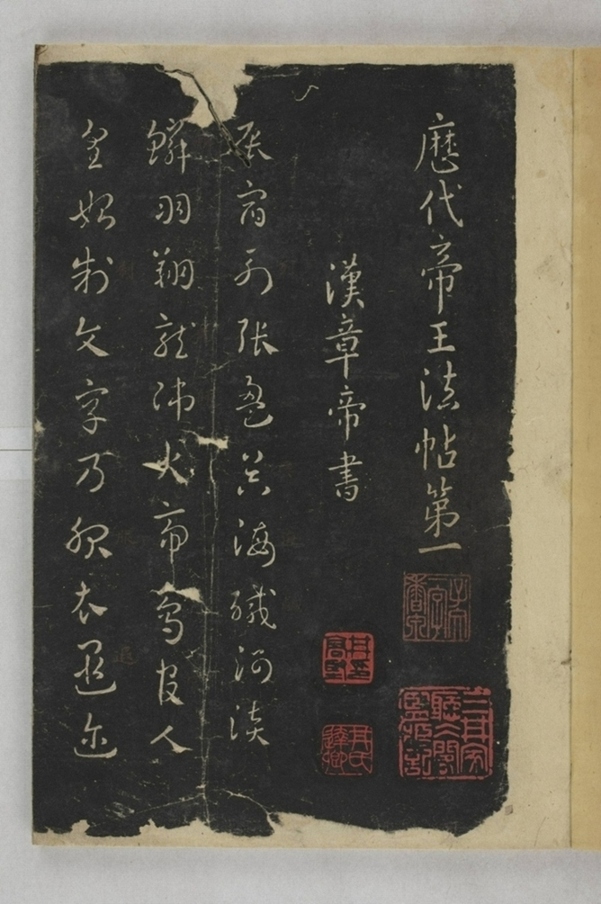 歷代帝王法帖第一
漢章帝書
辰宿列張盈昃海鹹河淡
鱗羽翔龍師火帝鳥官人
皇始制文字乃服衣遐迩